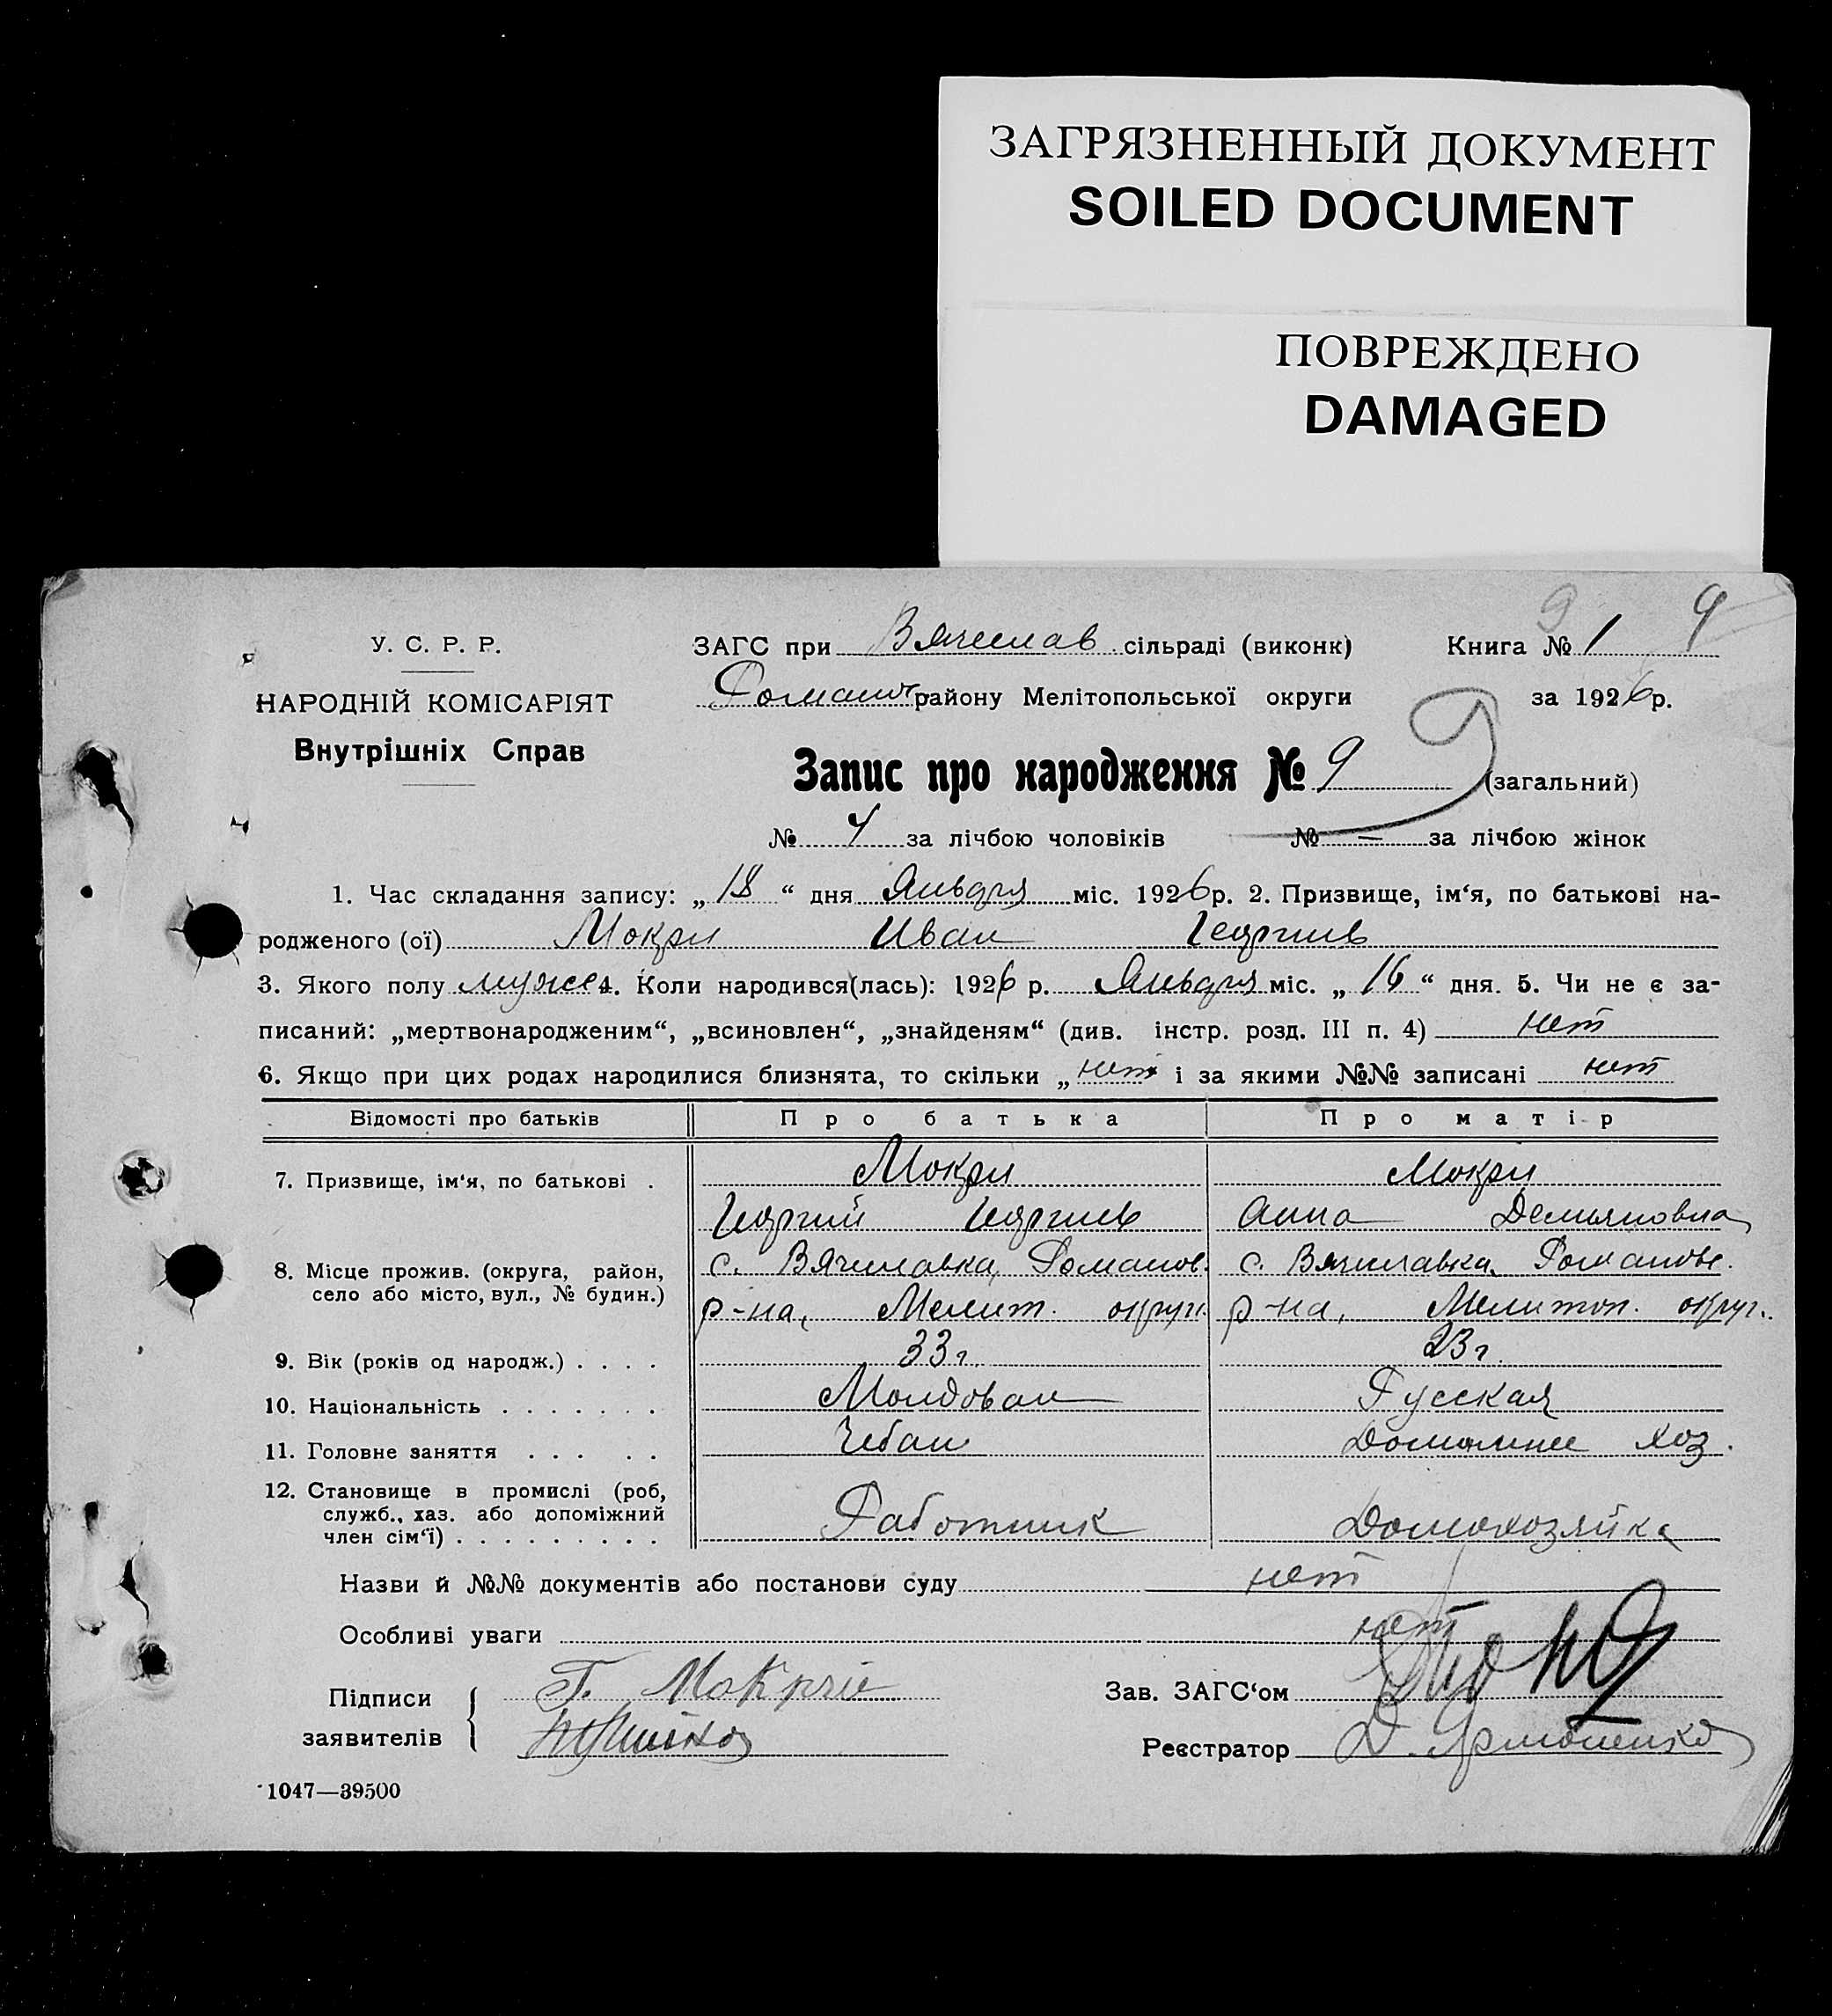 ЗАГРЯЗНЕННЫЙ ДОКУМЕНТ
SOILED DOCUMENT
ПОВРЕЖДЕНО
DAMAGED
9 9
У. С. Р. Р.
НАРОДНІЙ КОМІСАРІЯТ
Внутрішніх Справ
ЗАГС при Вячеслав сільраді (виконк) Книга № 1
Романов району Мелітопольської округи за 1926 р.
Запис про народження № 9 (загальний) 9
№ 4 за лічбою чоловіків № — за лічбою жінок
1. Час складання запису: „ 18 “ дня Января міс. 1926 р. 2. Призвище, ім‘я, по батькові на-
родженого (ої) Мокри Иван Георгиев
3. Якого полу мужс 4. Коли народився(лась): 1926 р. Января міс. „ 16 “ дня. 5. Чи не є за-
писаний: „мертвонародженим“, „всиновлен“, „знайденям“ (див. інстр. розд. III п. 4) нет
6. Якщо при цих родах народилися близнята, то скільки „ нет і за якими №№ записані нет
Відомості про батьків Про батька Про матір
7. Призвище, ім‘я, по батькові . Мокри Мокри
Георгий Георгиев Анна Демьяновна
8. Місце прожив. (округа, район, село або місто, вул., № будин.) с. Вячеславка, Романов. с. Вячеславка, Романовс.
р-на, Мелит. округ. р-на, Мелитоп. округ.
9. Вік (років од народж.) . . . . 33 г. 23 г.
10. Національність . . . . . . . Молдован Русская
11. Головне заняття . . . . . Чебан Домашнее хоз.
12. Становище в промислі (роб, служб., хаз. або допоміжний член сім‘ї) . . . . . . . . . Работник Домохозяйка
Назви й №№ документів або постанови суду нет
Особливі уваги нет
Підписи заявителів Г. Мокрие
Зав. ЗАГС‘ом
Реєстратор Д. Ярмошенко
1047—39500